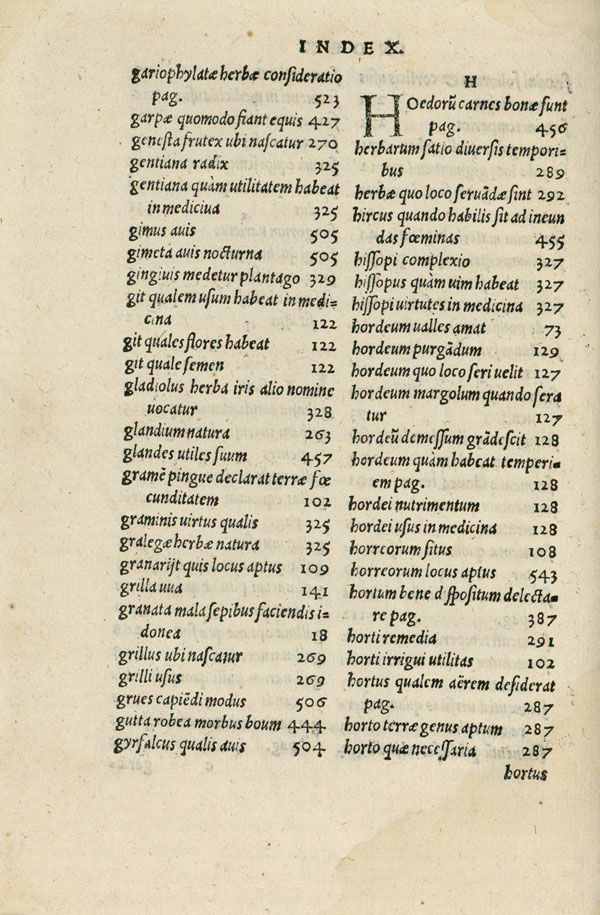 INDEX.
gariophylatæ herbæ consideratio
pag. 523
garpæ quomodo fiant equis 427
genesta frutex ubi nascatur 270
gentiana radix 325
gentiana quàm utilitatem habeat
in mediciua 325
gimus auis 505
gimeta auis nocturna 505
gingiuis medetur plantago 329
git qualem usum habeat in medi=
cina 122
git quales flores habeat 122
git quale semen 122
gladiolus herba iris alio nomine
uocatur 328
glandium natura 263
glandes utiles suum 457
gramē pingue declarat terræ fœ
cunditatem 102
graminis uirtus qualis 325
gralegæ herbæ natura 325
granarijt quis locus aptus 109
grilla uua 141
granata mala sepibus faciendis i=
donea 18
grillus ubi nascatur 269
grilli usus 269
grues capiēdi modus 506
gutta robea morbus boum 444
gyrfalcus qualis auis 504
H
HOedorū carnes bonæ sunt
pag. 456
herbarum satio diuersis tempori=
bus 289
herbæ quo loco seruādæ sint 292
hircus quando habilis sit ad ineun
das fœminas 455
hissopi complexio 327
hissopus quàm uim habeat 327
hissopi uirtutes in medicina 327
hordeum ualles amat 73
hordeum purgādum 129
hordeum quo loco seri uelit 127
hordeum margolum quando sera
tur 127
hordeū demessum grādescit 128
hordeum quàm habeat temperi=
em pag. 128
hordei nutrimentum 128
hordei usus in medicina 128
horreorum situs 108
horreorum locus aptus 543
hortum bene d spositum delecta=
re pag. 387
horti remedia 291
horti irrigui utilitas 102
hortus qualem aërem desiderat
pag. 287
horto terræ genus aptum 287
horto quæ necessaria 287
hortus